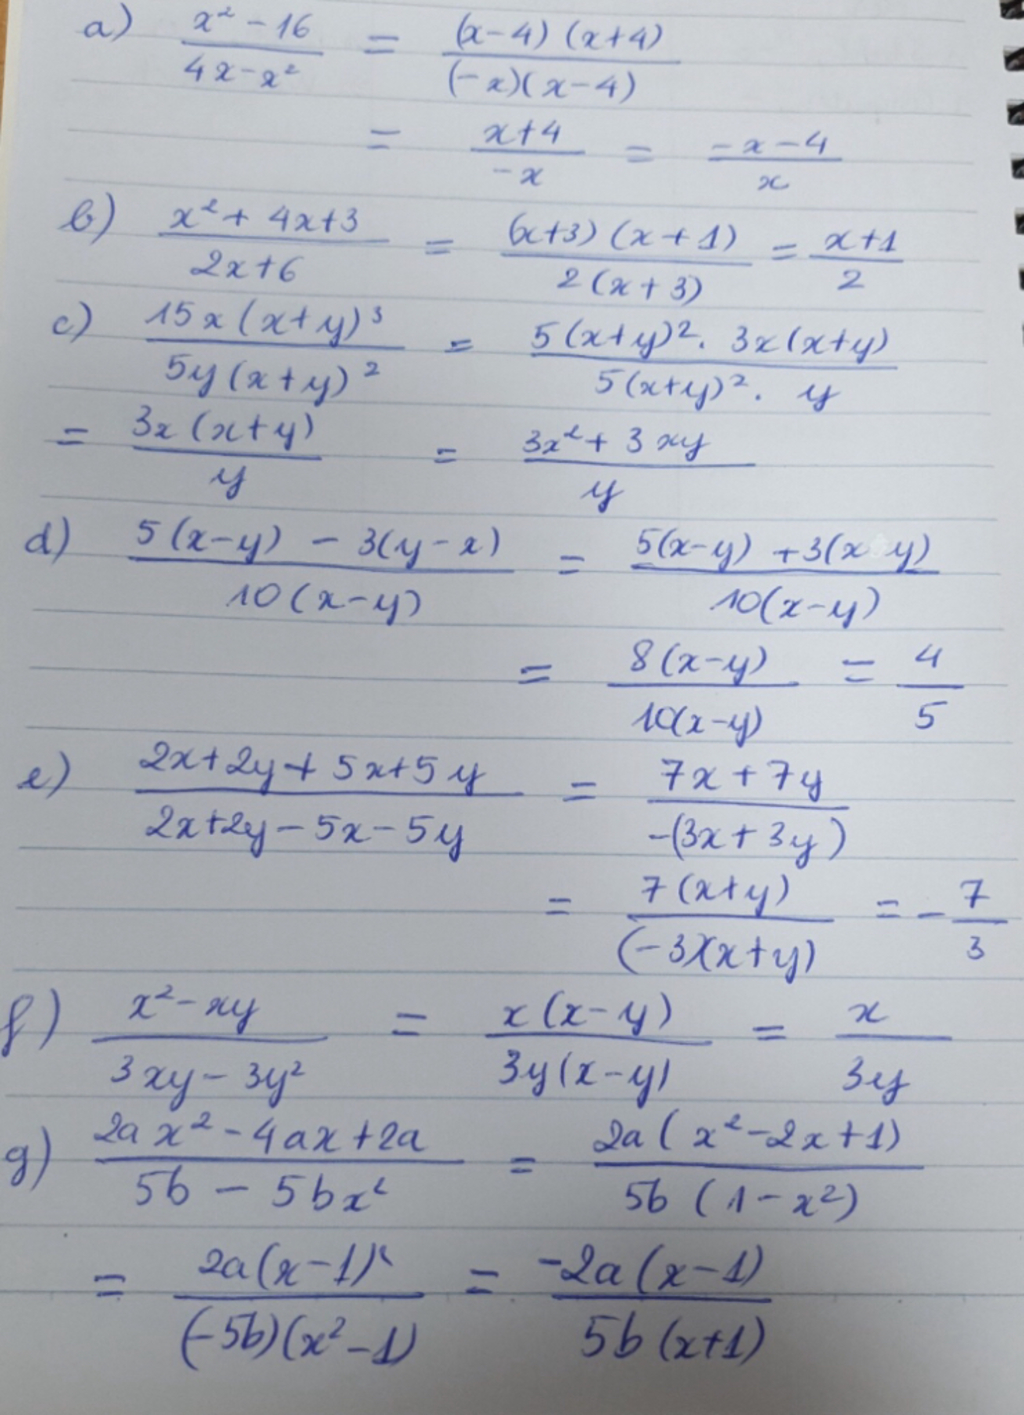 a) (x² - 16)/(4x - x²) = ((x-4)(x+4))/((-x)(x-4))
= (x+4)/(-x) = (-x-4)/x
b) (x² + 4x+3)/(2x+6) = ((x+3)(x+1))/(2(x+3)) = (x+1)/2
c) (15x(x+y)³)/(5y(x+y)²) = (5(x+y)². 3x(x+y))/(5(x+y)². y)
= (3x(x+y))/y = (3x²+3xy)/y
d) (5(x-y) - 3(y-x))/(10(x-y)) = (5(x-y) +3(x y))/(10(x-y))
= (8(x-y))/(10(x-y)) = 4/5
e) (2x+2y+5x+5y)/(2x+2y-5x-5y) = (7x+7y)/(-(3x+3y))
= (7(x+y))/((-3)(x+y)) = -7/3
f) (x²-xy)/(3xy-3y²) = (x(x-y))/(3y(x-y)) = x/(3y)
g) (2ax²-4ax+2a)/(5b-5bx²) = (2a(x²-2x+1))/(5b(1-x²))
= (2a(x-1)²)/((-5b)(x²-1)) = (-2a(x-1))/(5b(x+1))